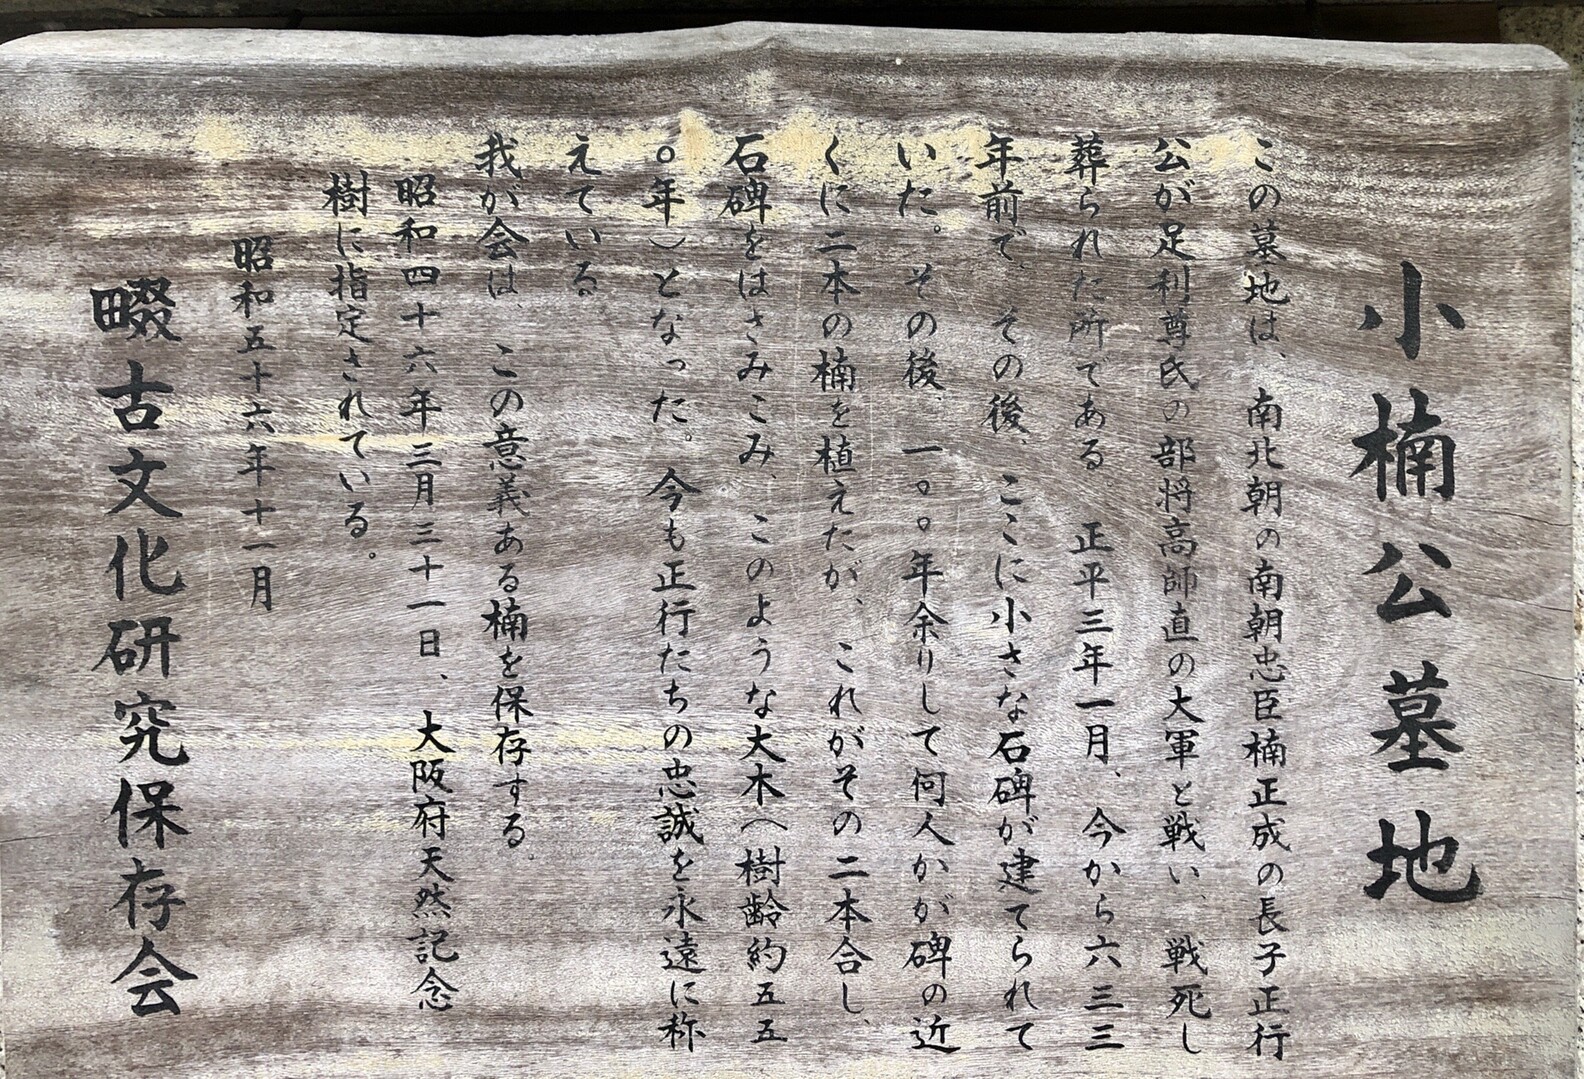 小楠公墓地
この墓地は、南北朝の南朝忠臣楠正成の長子正行
公が足利尊氏の部将高師直の大軍と戦い、戦死し
葬られた所である　正平三年一月、今から六三三
年前で、その後、ここに小さな石碑が建てられて
いた。その後、一〇〇年余りして何人かが碑の近
くに二本の楠を植えたが、これがその二本合し、
石碑をはさみこみ、このような大木（樹齢約五五
〇年）となった。今も正行たちの忠誠を永遠に称
えている
我が会は、この意義ある楠を保存する。
昭和四十六年三月三十一日、大阪府天然記念
樹に指定されている。
昭和五十六年十一月
畷古文化研究保存会